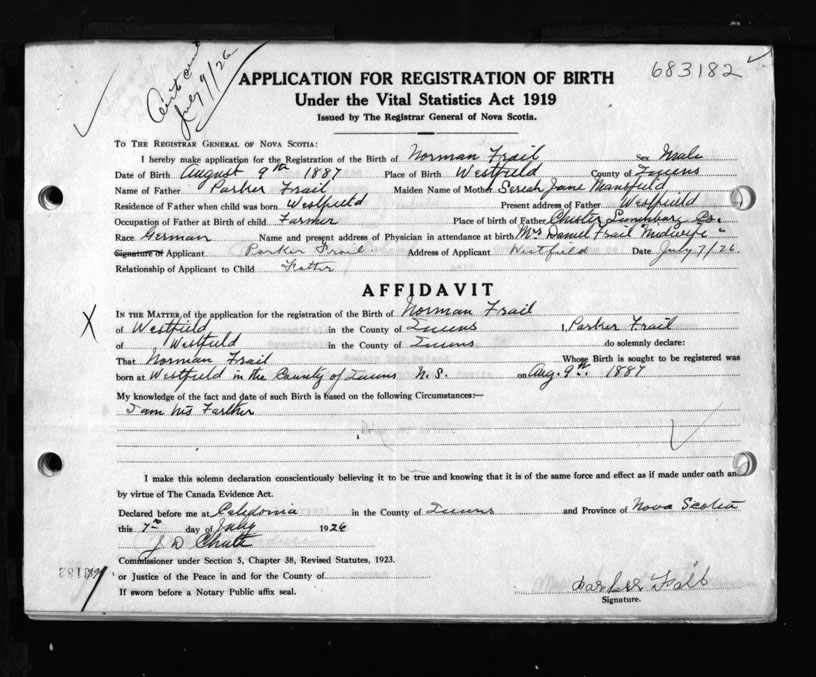 683182
Cert sent
July 9/26
APPLICATION FOR REGISTRATION OF BIRTH
Under the Vital Statistics Act 1919
Issued by The Registrar General of Nova Scotia.
TO THE REGISTRAR GENERAL OF NOVA SCOTIA:
I hereby make application for the Registration of the Birth of Norman Frail Sex Male
Date of Birth August 9th 1887 Place of Birth Westfield County of Queens
Name of Father Parker Frail Maiden Name of Mother Sereah Jane Mansfield
Residence of Father when child was born Westfield Present address of Father Westfield
Occupation of Father at Birth of child Farmer Place of birth of Father Chister Lunenburg Co.
Race German Name and present address of Physician in attendance at birth Mrs Daniel Frail "Midwife"
Signature of Applicant Parker Frail Address of Applicant Westfield Date July 7/26.
Relationship of Applicant to Child Father
AFFIDAVIT
IN THE MATTER of the application for registration of the Birth of Norman Frail
of Westfield in the County of Queens I, Parker Frail
of Westfield in the County of Queens do solemnly declare:
That Norman Frail Whose Birth is sought to be registered was
born at Westfield in the County of Queens N.S. on Aug. 9th 1887
My knowledge of the fact and date of such Birth is based on the following Circumstances:—
I am his Farther
I make this solemn declaration conscientiously believing it to be true and knowing that it is of the same force and effect as if made under oath and
by virtue of The Canada Evidence Act.
Declared before me at Caledonia in the County of Queens and Province of Nova Scotia
this 7th day of July 1926
J D Chute
Commissioner under Section 5, Chapter 38, Revised Statutes, 1923.
or Justice of the Peace in and for the County of
If sworn before a Notary Public affix seal.
Signature.